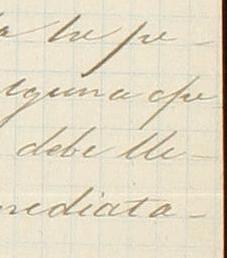 la he pe-
lguna ofre
debe lle-
mediata-